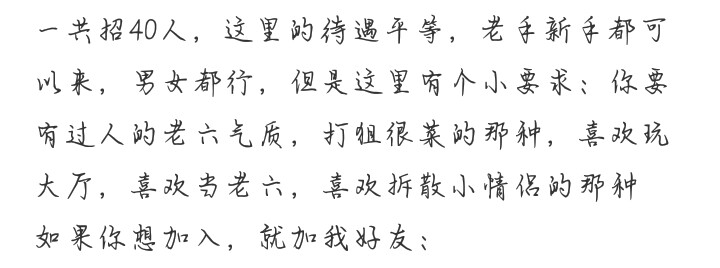 一共招40人，这里的待遇平等，老手新手都可
以来，男女都行，但是这里有个小要求；你要
有过人的老六气质，打狙很菜的那种，喜欢玩
大厅，喜欢当老六，喜欢拆散小情侣的那种
如果你想加入，就加我好友；